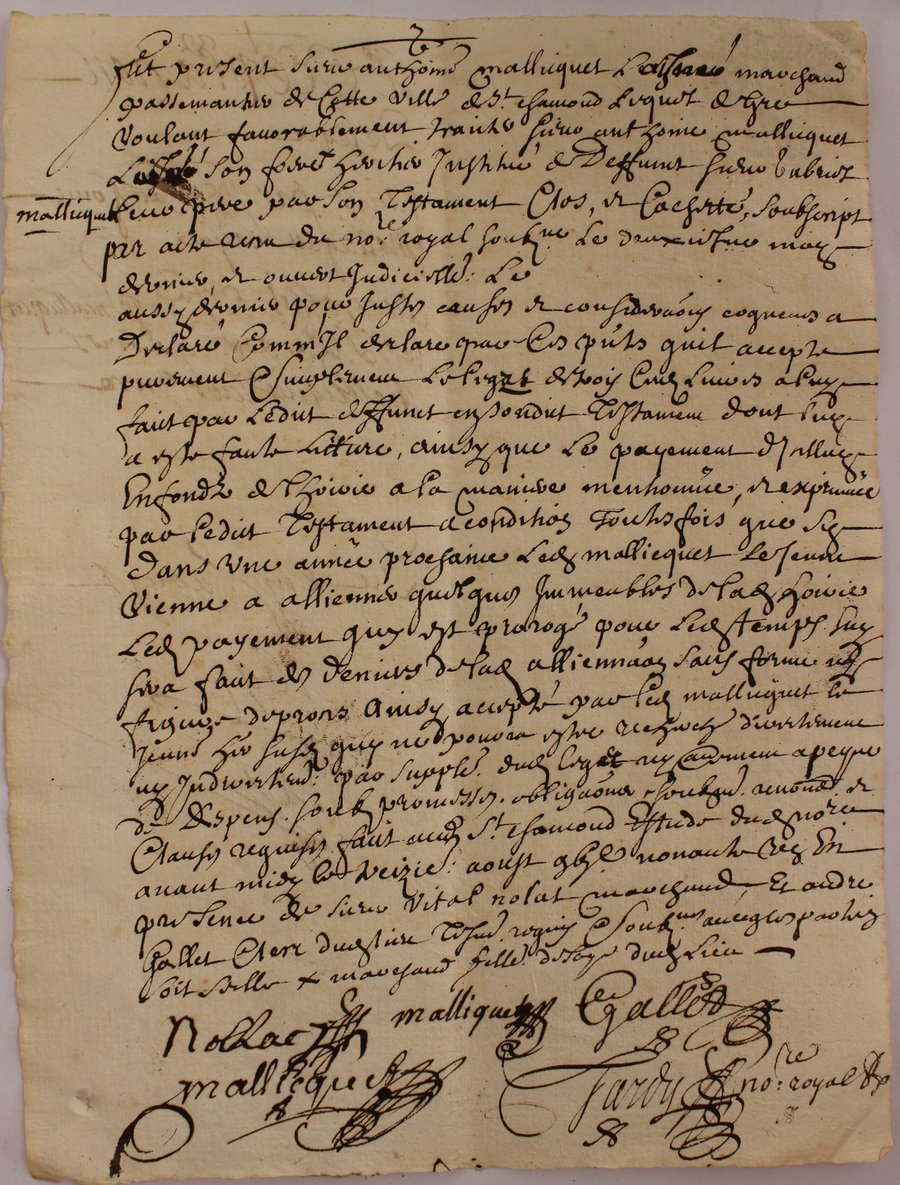 2
fut present sieur anthoine mallicquet Laisné marchand
passemantier de Cette ville de St chamond Lequel de gré
voulant favorablement traiter sieur anthoine mallicquet
son frere heritier Institué de Deffunct sieur gabriel
mallicquet Leur pere par son Testament Clos, et Cachetté, soubscript
par acte receu du no.re royal soubné Le deuxiesme may
dernier, et ouvert Judiciellt. Le
aussy dernier pour Justes causes et consideraõns cogneues a
Declaré Comm'Il declare par Ces pnts quil accepte
purement & simplement Le legat de trois Cens Livres a luy
faict par Ledict deffunct en sondict Testament dont luy
a esté faicte Lecture, ainsy que Le payement d'Icelluy
En fondz de L'hoirie a la maniere mentionnée, et exprimée
par ledict Testament a condition Toutesfois que sy
dans une année prochaine Led mallicquet Le Jeune
vienne a allienner quelques Immeubles de lad hoirie
Led payement quy est prorogé pour Led temps luy
sera faict des deniers de lad alliennaõn sans forme ny
figure de proces Ainsy accepté par led mallicquet le
Jeune quy ne pourra estre recherché directement
ny Indirectemt. par supplet. dud legat ny autrement a peyne
de Despens. soubz promesses. obligaõns soubmis. renonõns et
Clauses requises faict aud St chamond Estude dud no.re
avant midy le Treizie: aoust nonante En
presence de sieur Vital nolat marchand, Et andre
Gallet Clerc dud lieu Tesm. requis & soubnes avec les parties
soit Seelle x marchand dud Lieu
mallicquet Gallet
mallicquet Tardy no.re royal